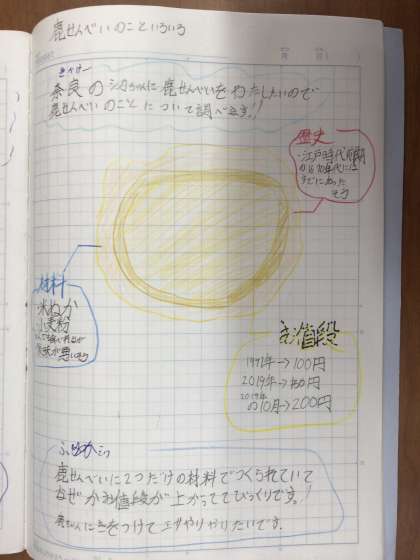 鹿せんべいのこといろいろ
きっかけ
奈良のシカちゃんに鹿せんべいをわたしたいので
鹿せんべいのことについて調べます!!
歴史
・江戸時代前期
から
年代には
すでにあった
そう
材料
・米ぬか
小麦粉
お値段
1991年→100円
2019年→150円
2019年
の10月→200円
ふりかえり
鹿せんべいは2つだけの材料でつくられていて
なぜかお値段が上がっててびっくりです。!
気をつけてエサやりやりたいです。